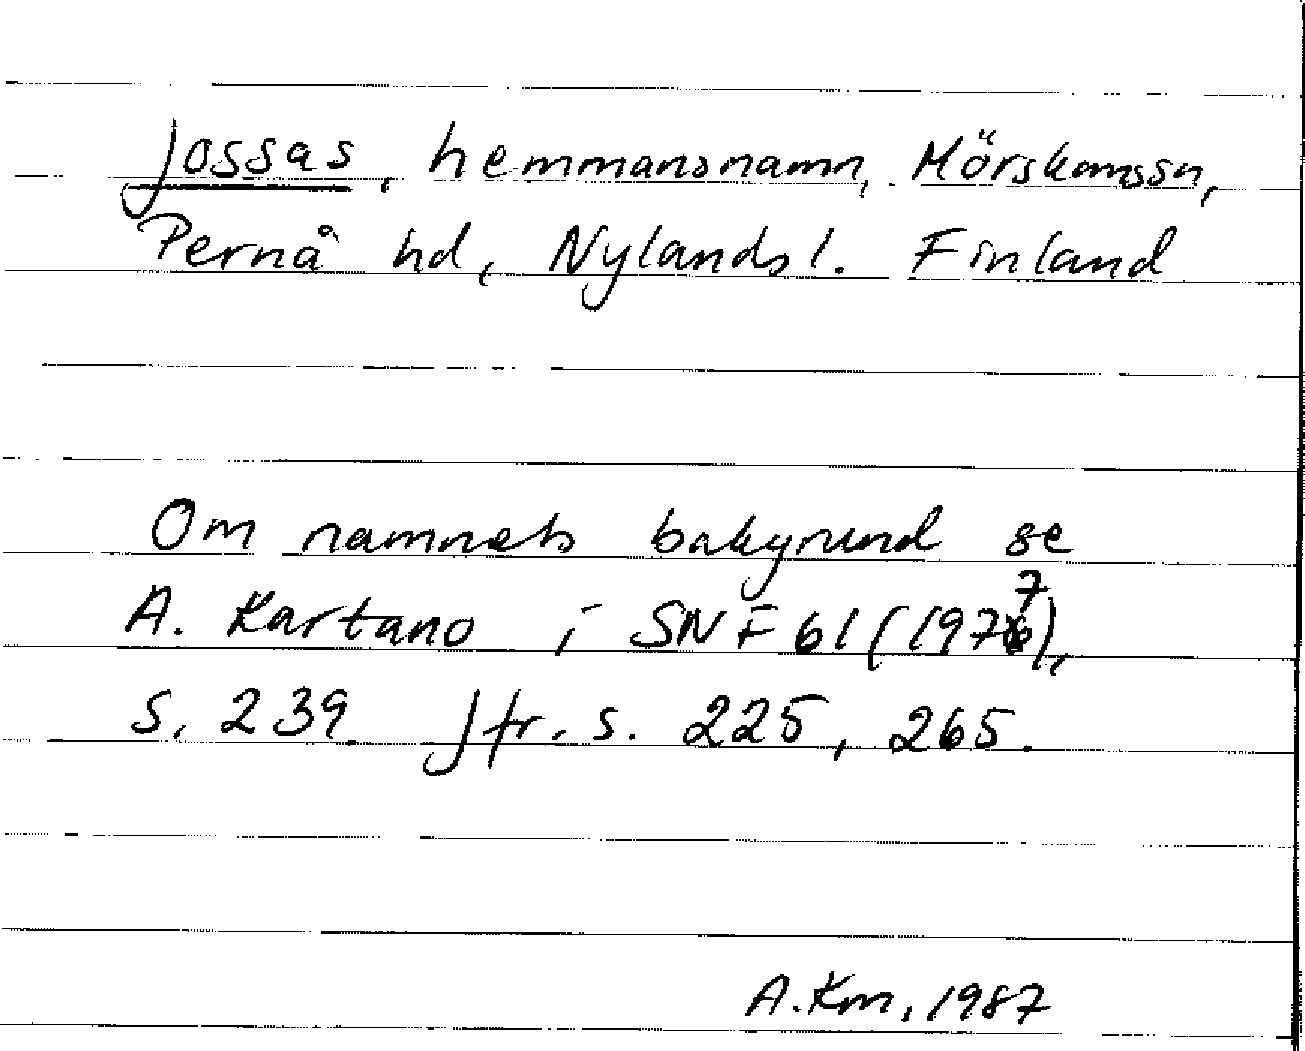 Jossas, hemmansnamn, Mörskomssn,
Pernå hd, Nylands l. Finland
Om namnets bakgrund se
A. Kartano i SNF 61 (1977),
s. 239. Jfr. s. 225, 265.
A.Km, 1987